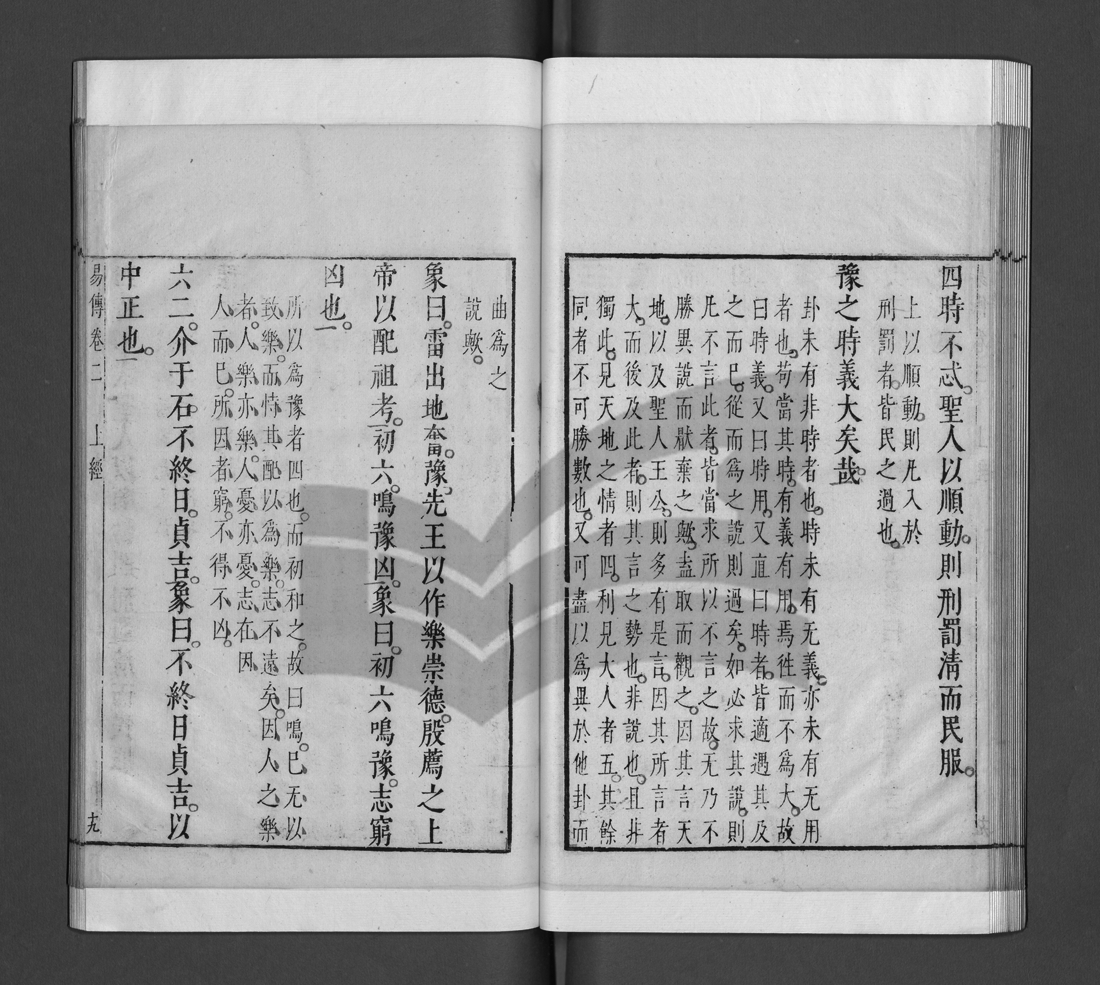 四時不忒。聖人以順動。則刑罰淸而民服。
上以順動。則凡入於
刑罰者。皆民之過也。
豫之時義大矣哉。
卦未有非時者也。時未有无義。亦未有无用
者也。苟當其時。有義有用。焉徃而不爲大。故
曰時義。又曰時用。又直曰時者。皆適遇其及
之而已。從而爲之說則過矣。如必求其說。則
凡不言此者。皆當求所以不言之故。无乃不
勝異說而猒棄之歟。盍取而觀之。因其言天
地。以及聖人王公。則多有是言。因其所言者
大。而後及此者。則其言之勢也。非說也。且非
獨此。見天地之情者四。利見大人者五。其餘
同者不可勝數也。又可盡以爲異於他卦而
曲爲之
說歟。
象曰。雷出地奮。豫。先王以作樂崇德。殷薦之上
帝以配祖考。初六。鳴豫凶。象曰。初六鳴豫。志窮
凶也。
所以爲豫者四也。而初和之。故曰鳴。已无以
致樂。而恃其配以爲樂。志不遠矣。因人之樂
者。人樂亦樂。人憂亦憂。志在因
人而已。所因者窮。不得不凶。
六二。介于石。不終日。貞吉。象曰。不終日貞吉。以
中正也。
易傳卷二 上經 九